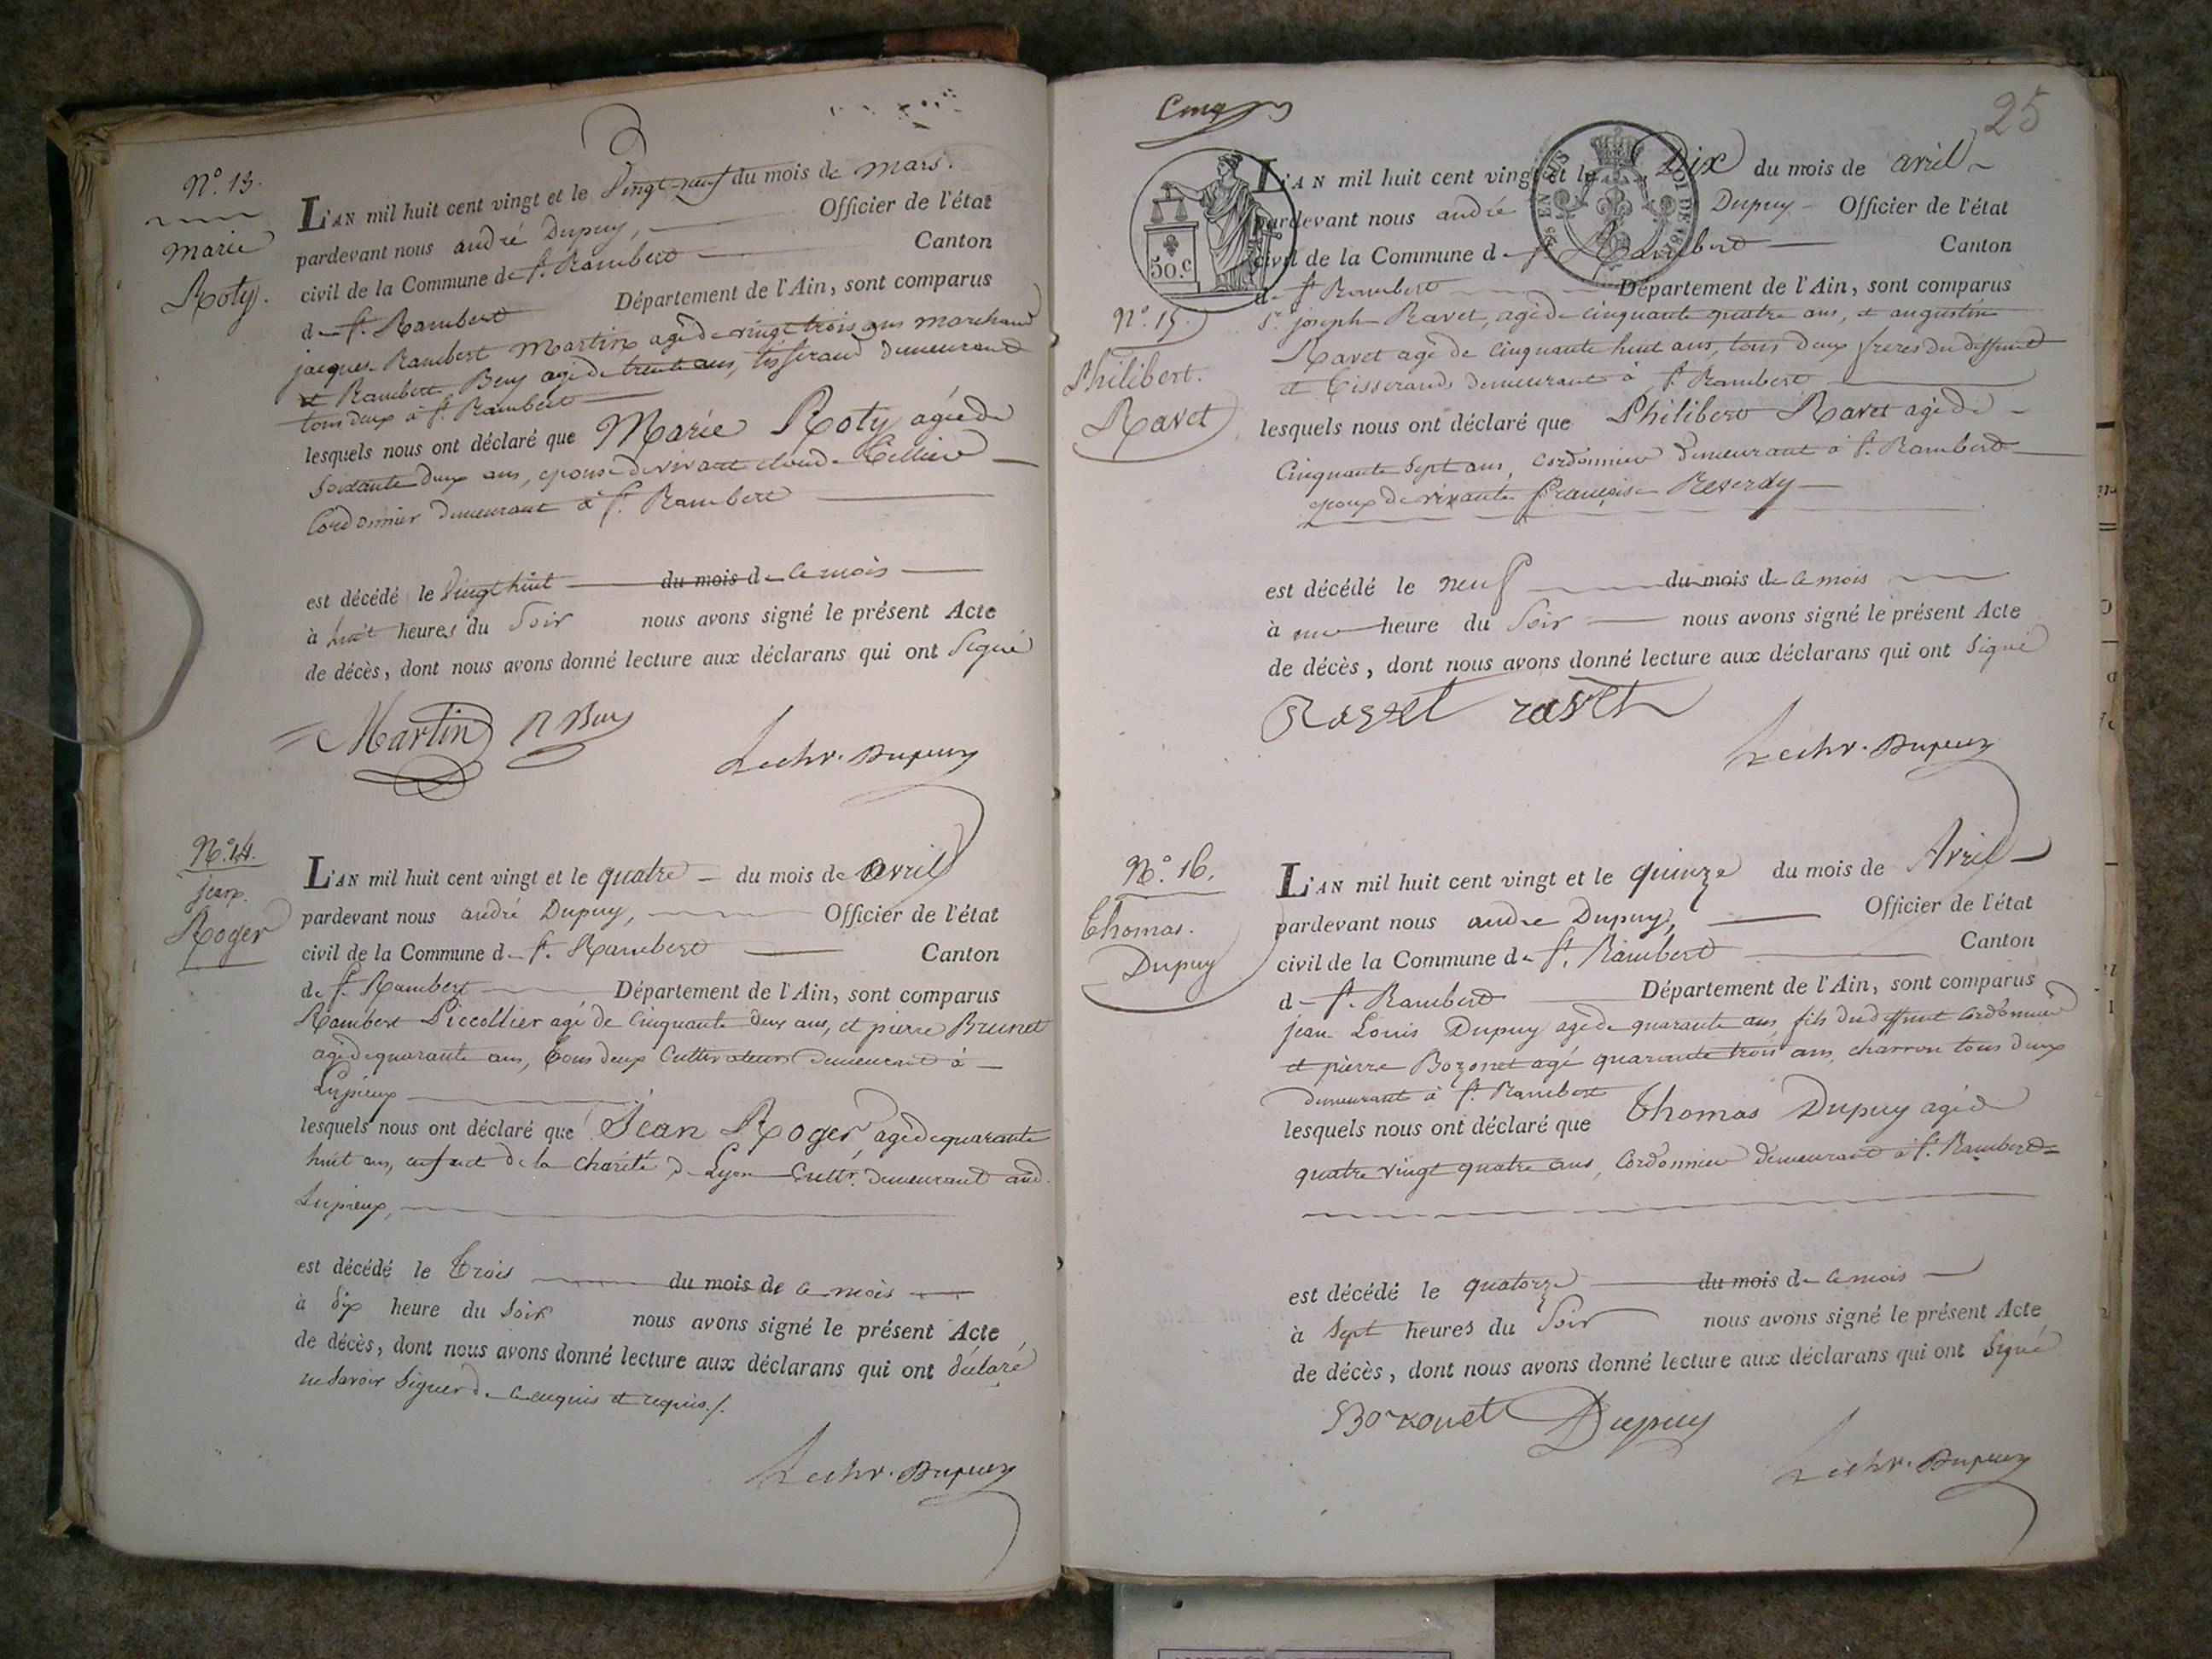 N.° 13.
Marie
Roty.
L'AN mil huit cent vingt et le Vingt neuf du mois de mars.
pardevant nous andré Dupuy, Officier de l'état
civil de la Commune de St. Rambert Canton
de St. Rambert Département de l'Ain, sont comparus
jacques Rambert Martin agé de vingt trois ans marchand
et Rambert Beuy agé de trente ans, tisserand demeurant
tous deux à St. Rambert
lesquels nous ont déclaré que Marie Roty agée de
Soixante deux ans, epouse de vivant claude Tellier
Cordonnier demeurant à St. Rambert
est décédé le Vingt huit du mois de ce mois
à huit heures du Soir nous avons signé le présent Acte
de décès, dont nous avons donné lecture aux déclarans qui ont Signé
Martin R Beuy
Dupuy
N.° 14.
jean
Roger
L'AN mil huit cent vingt et le quatre du mois de avril
pardevant nous andré Dupuy, Officier de l'état
civil de la Commune de St. Rambert Canton
de St. Rambert Département de l'Ain, sont comparus
Rambert Piccollier agé de Cinquante deux ans, et pierre Brunet
agé de quarante ans, tous deux Cultivateurs demeurant à
Lupieux
lesquels nous ont déclaré que Jean Roger, agé de quarante
huit ans, enfant de la charité de Lyon Cultr. demeurant aud.
Lupieux,
est décédé le trois du mois de ce mois
à dix heure du Soir nous avons signé le présent Acte
de décès, dont nous avons donné lecture aux déclarans qui ont déclaré
ne Savoir Signer de ce enquis et requis./.
Dupuy
Cinq
25
50.c
L'AN mil huit cent vingt et le Dix du mois de avril
pardevant nous andré Dupuy Officier de l'état
civil de la Commune de St. Rambert Canton
de St Rambert Département de l'Ain, sont comparus
N.° 15.
Philibert.
Ravet
Sr. joseph Ravet, agé de cinquante quatre ans, et augustin
Ravet agé de Cinquante huit ans, tous deux freres du deffunt
et Tisserands demeurant à St. Rambert
lesquels nous ont déclaré que Philibert Ravet agé de
Cinquante Sept ans, Cordonnier demeurant à St. Rambert
epoux de vivante françoise Reverdy
est décédé le neuf du mois de ce mois
à une heure du Soir nous avons signé le présent Acte
de décès, dont nous avons donné lecture aux déclarans qui ont Signé
Ravet ravet
Dupuy
N.° 16.
Thomas.
Dupuy
L'AN mil huit cent vingt et le quinze du mois de Avril
pardevant nous andre Dupuy, Officier de l'état
civil de la Commune de St. Rambert Canton
de St. Rambert Département de l'Ain, sont comparus
jean Louis Dupuy agé de quarante ans fils du deffunt Cordonnier
et pierre Bozonet agé quarante trois ans, charron tous deux
demeurants à St. Rambert
lesquels nous ont déclaré que Thomas Dupuy agé de
quatre vingt quatre ans, Cordonnier demeurant à St. Rambert
est décédé le quatorze du mois de ce mois
à Sept heures du Soir nous avons signé le présent Acte
de décès, dont nous avons donné lecture aux déclarans qui ont Signé
Bozonet Dupuy
Dupuy